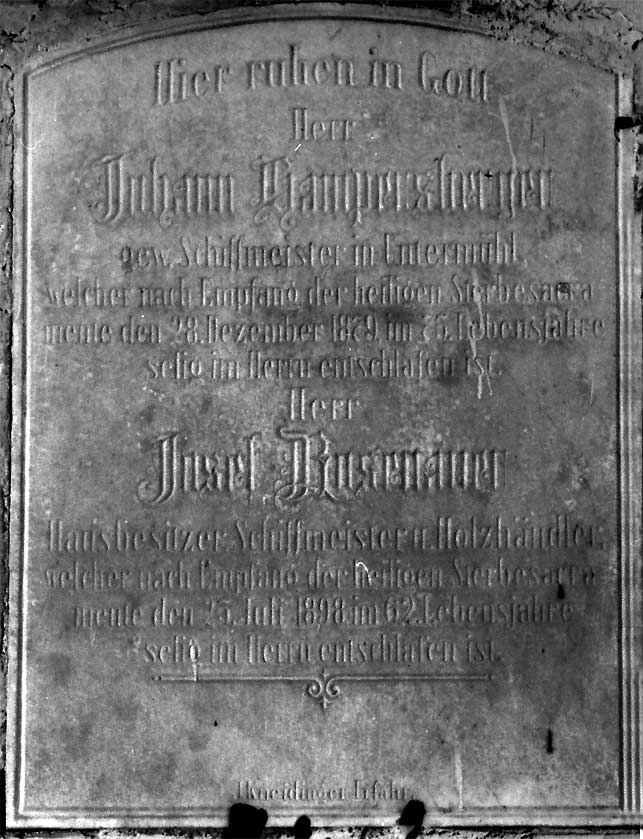 Hier ruhen in Gott
Herr
Johann Hamperszberger
gew. Schiffmeister in Untermühl,
welcher nach Empfang der heiligen Sterbesacra
mente den 28. Dezember 1879, im 75. Lebensjahre
selig im Herrn entschlafen ist.
Herr
Josef Rosenauer
Hausbesitzer, Schiffmeister u. Holzhändler,
welcher nach Empfang der heiligen Sterbesacra
mente den 25. Juli 1898 im 62. Lebensjahre
selig im Herrn entschlafen ist.
Kneidinger